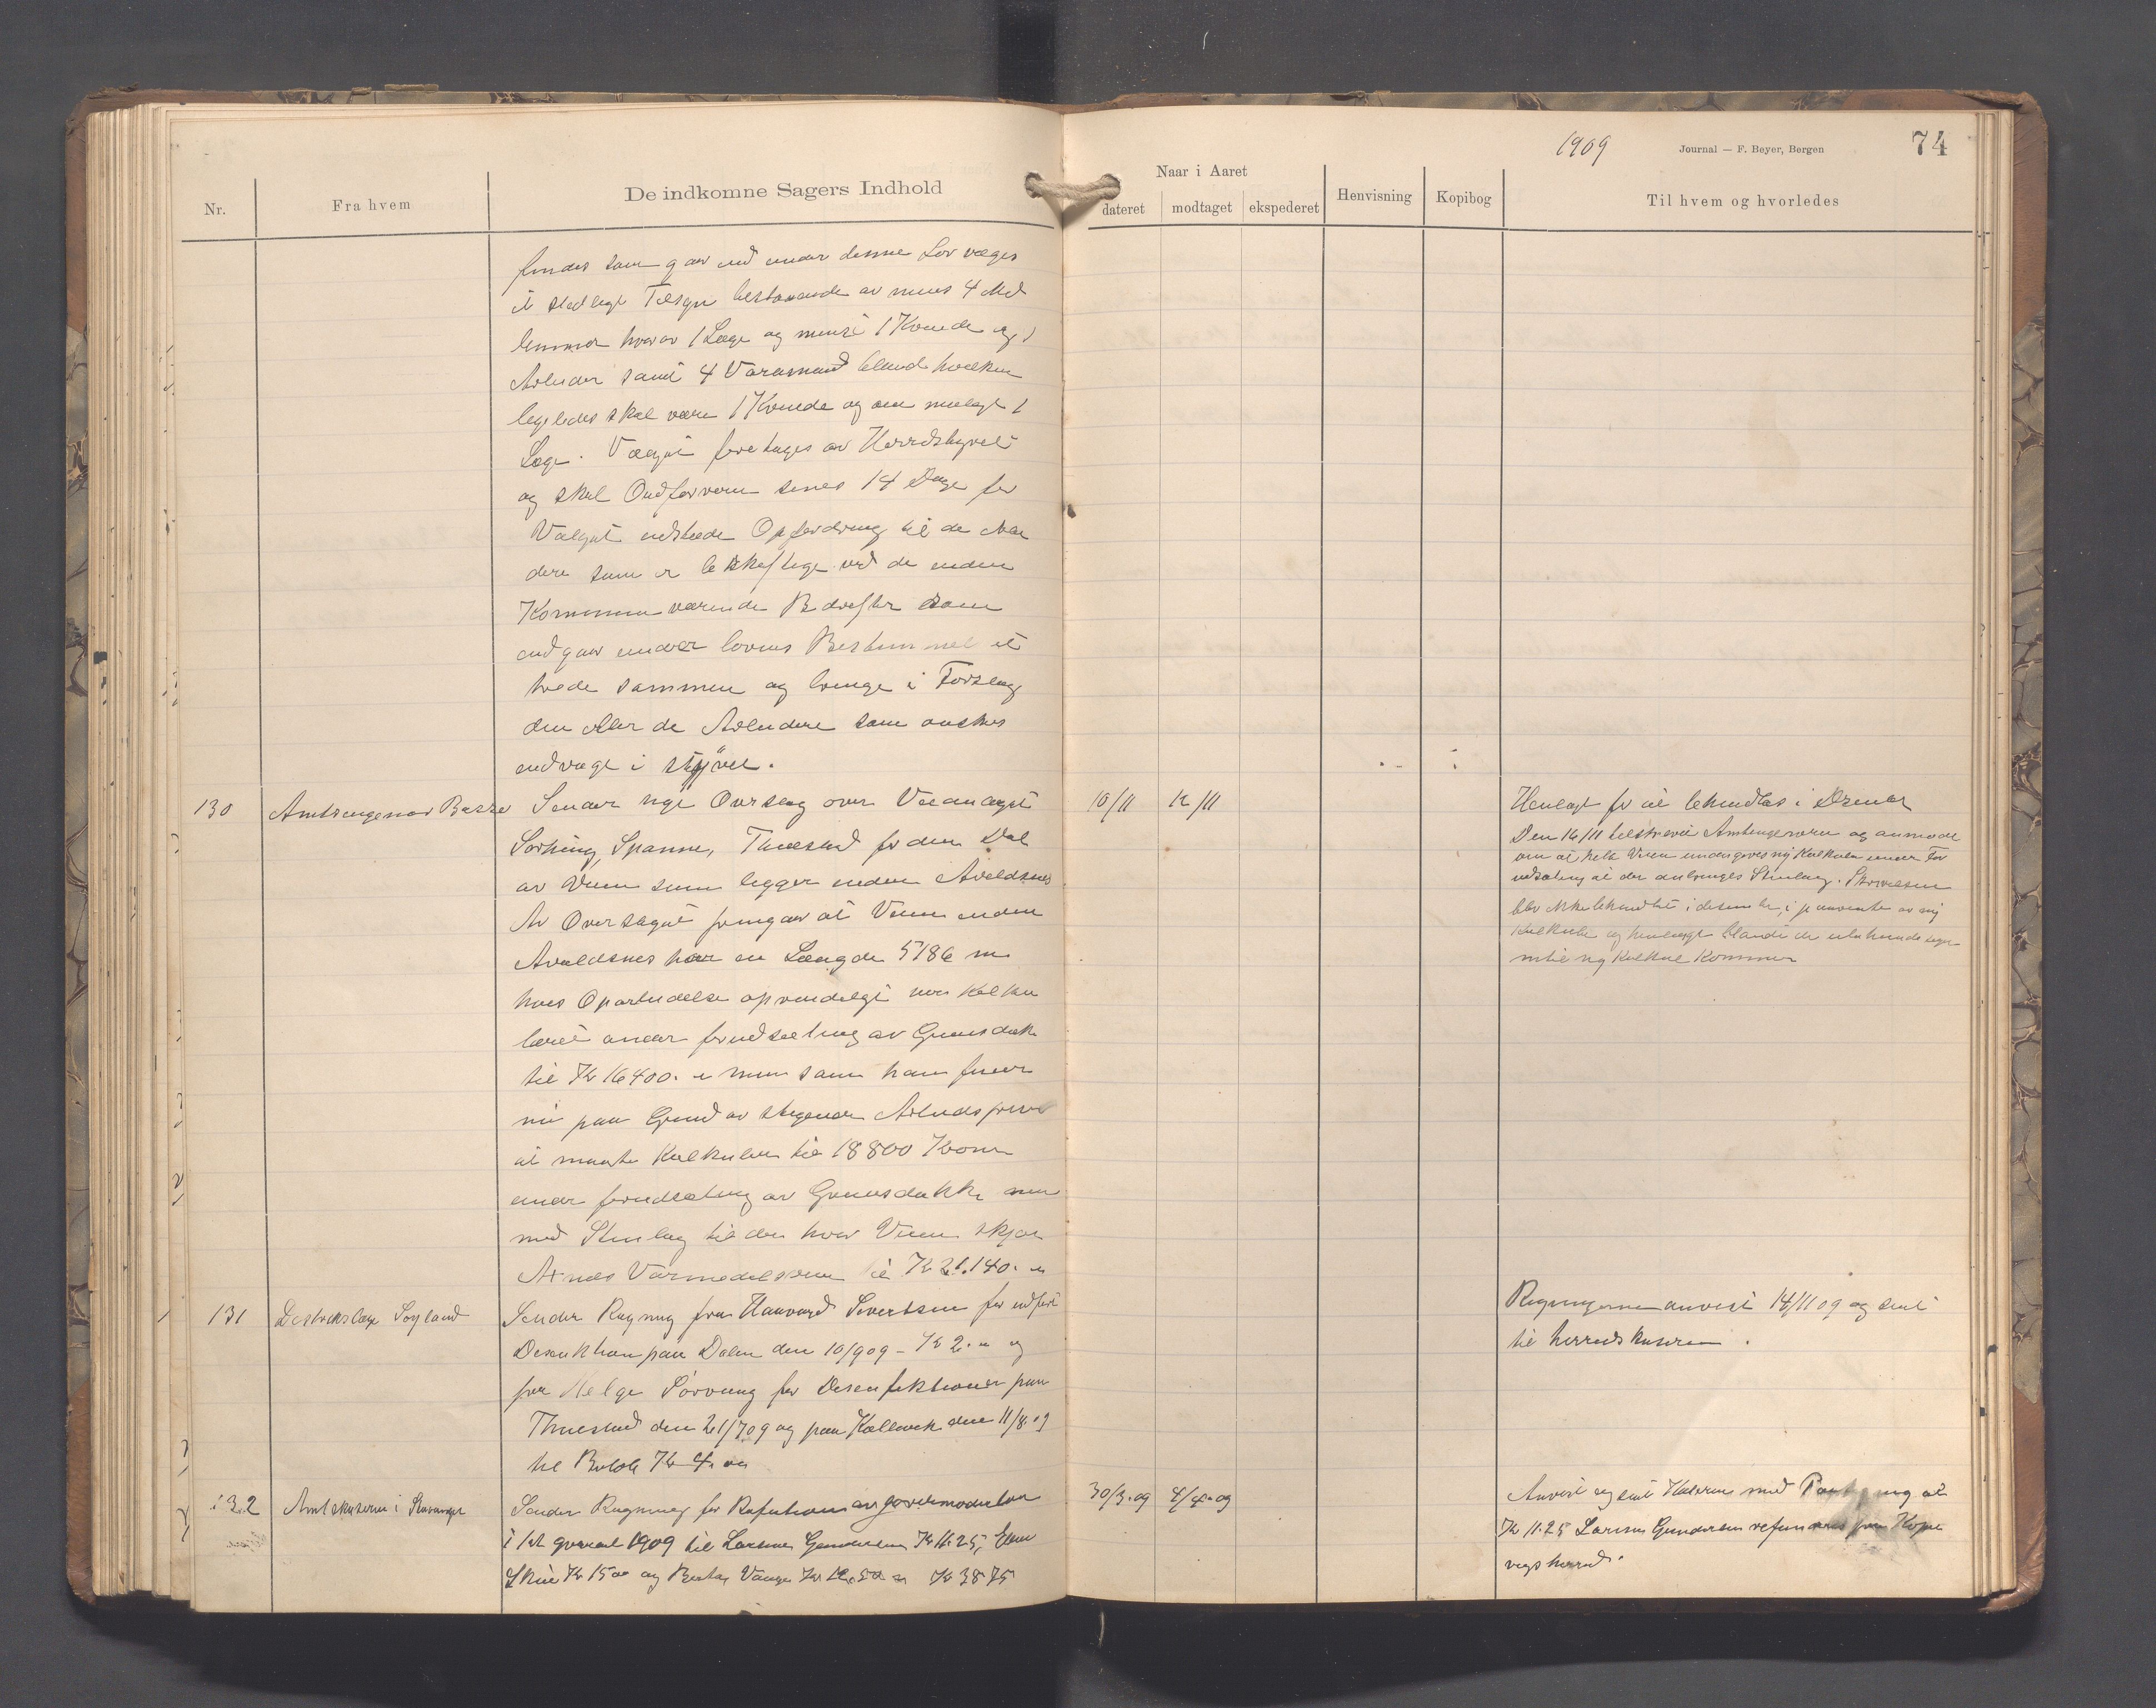 1909
Journal — F. Beyer, Bergen
74
Nr.
Fra hvem
De indkomne Sagers Indhold
Naar i Aaret
dateret
modtaget
ekspederet
Henvisning
Kopibog
Til hvem og hvorledes
findes som gaar ind under denne Lov vælges
et stedlige Tilsyn bestaaende av minst 4 Med
lemmer hvorav 1 Læge og minst 1 Kvinde og 1
Arbeider samt 4 Varamænd blandt hvilken
ligeledes skal være 1 Kvinde og om muligt 1
Læge. Valget foretages av Herredstyret
og skal Ordføreren senest 14 Dage før
Valget utstede Opfordring til de Arbei
dere som er beskjæftiget ved de inden
Kommunen værende Bedrifter som
indgaar under lovens Bestemmelse at
træde sammen og bringe i Forslag
den eller de Arbeidere som ønskes
indvalgt i styret.
130
Amtsingeniør Basse
Sender nyt Overslag over Veianlægget
Sørhing, Spanne, Thuestad for den Del
av Veien som ligger inden Avaldsnes
Av Overslaget fremgaar at Veien inden
Avaldsnes har en Længde 5186 m
hvis Oparbeidelse oprindeligt var kalku
leret under forudsætning av Grusdække
til Kr 16400. men som han finder
nu paa Grund av stigende Arbeidspriser
at maatte Kalkulere til 18800 Kroner
under forudsætning av Grusdække men
med Stenlag til der hvor Veien skjær
Kr 21.140.
10/11
12/11
Henlagt for at behandles i Desember
Den 16/11 tilskrevet Amtsingeniøren og anmodet
om at hele Veien undergives ny Kalkule under For
udsætning at der anbringes Stenlag. Skrivelsen
blev ikke behandlet i desember, i paavente av ny
Kalkule og henlægges blandt de ubehandlede sager
indtil ny Kalkule Kommer
131
Distriktslæge Søyland
Sender Regning fra Haavard Sivertsen for udført
Desinfektion paa Dalen den 10/9 09 - Kr 2. og
for Helge Sørvaag for Desinfektioner paa
Thuestad den 21/7 09 og paa Kallevik den 11/8.09
til Beløb Kr 4.00
Regningerne anvist 14/11 09 og sent
til herredskaseren.
132
Amtskasereren i Stavanger
Sender Regning for Refution av jordemoderløn
i 1st qvartal 1909 til Larsine Gundersen Kr 11.25,
Skeie Kr 15 00 og Berta Vaage Kr 12.50 Kr 38 75
30/3.09
4/4.09
Anvist og sent Kaseren med Paategning at
Kr 11.25 Larsine Gundersen refunderes fra Kope
viks herred.